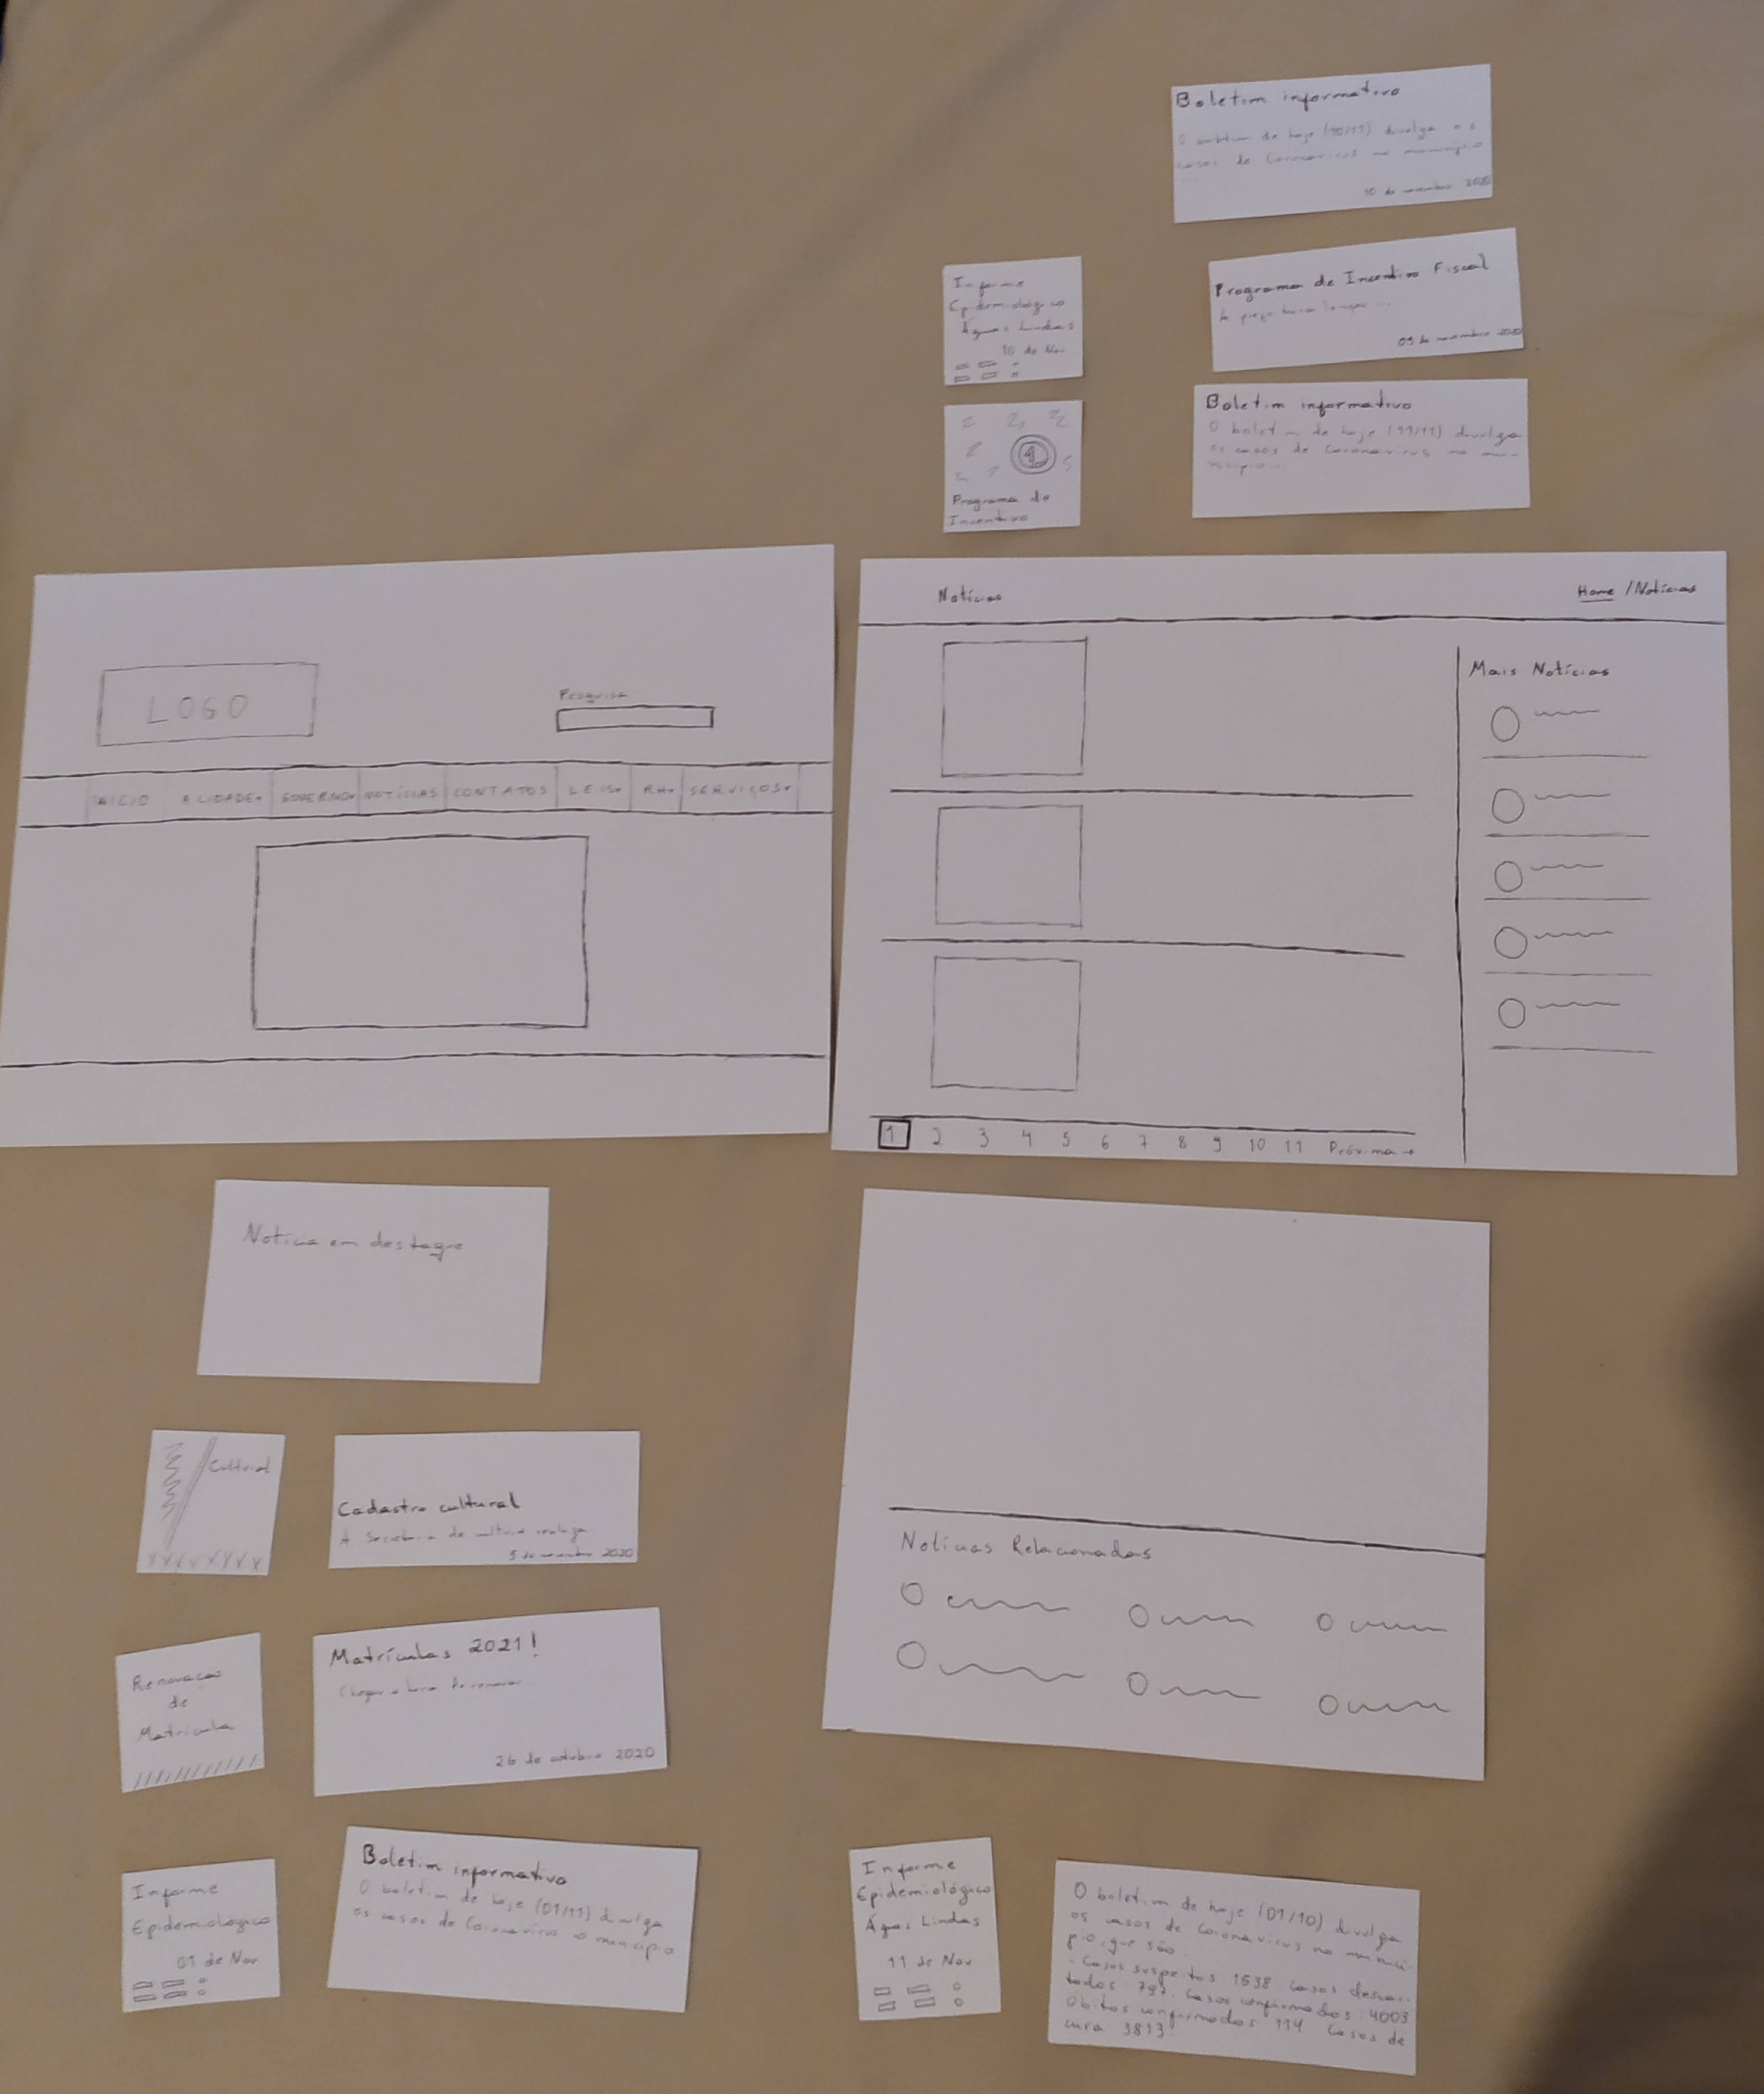 Boletim informativo
O boletim de hoje (10/11) divulga os
casos de Coronavirus no município
...
10 de novembro 2020
Informe
Epidemiológico
Águas Lindas
10 de Nov
Programa de Incentivo Fiscal
A prefeitura lançou ...
09 de novembro 2020
1
Programa de
Incentivo
Boletim informativo
O boletim de hoje (11/11) divulga
os casos de Coronavirus no mun-
icípio...
LOGO
Pesquisa
INICIO A CIDADE GOVERNO NOTÍCIAS CONTATOS LEIS RH SERVIÇOS
Notícias
Home / Notícias
Mais Notícias
1 2 3 4 5 6 7 8 9 10 11 Próxima →
Noticia em destaque
Cultural
Cadastro cultural
A Secretaria de cultura
5 de novembro 2020
Renovacao
de
Matricula
Matrículas 2021!
Chegou a hora de renovar
26 de outubro 2020
Informe
Epidemiologico
01 de Nov
Boletim informativo
O boletim de hoje (01/11) divulga
os casos de Coronavirus o município
Noticias Relacionadas
Informe
Epidemiológico
Águas Lindas
11 de Nov
O boletim de hoje (01/10) divulga
os casos de Coronavirus no munici-
pio, que são
- Casos suspeitos 1538 casos descar-
tados 797. Casos confirmados: 4003
Óbitos confirmados 114 Casos de
cura 3813